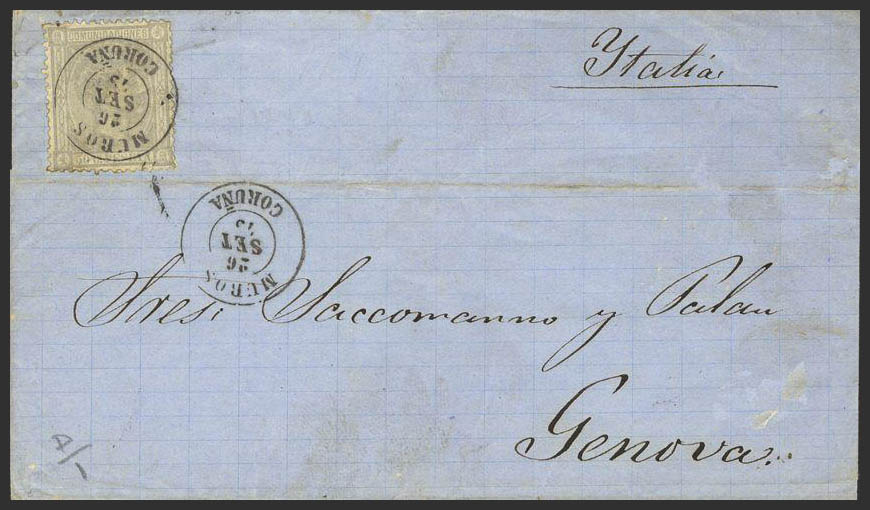 COMUNICACIONES
MUROS
26
SET
CORUÑA
Ytalia
MUROS
26
SET
CORUÑA
Sres. Saccomanno y Palau
Genova.